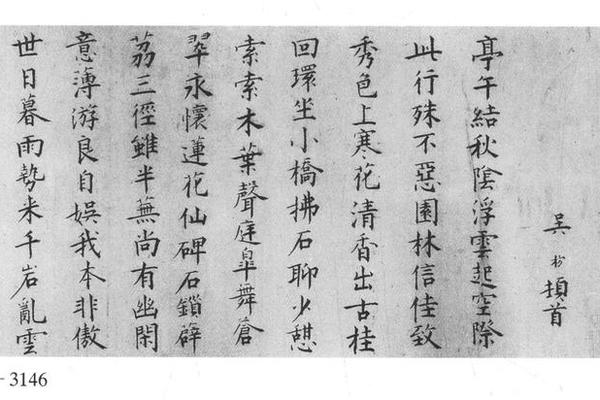 吳頓首
亭午結秋陰浮雲起空際
此行殊不惡園林信佳致
秀色上寒花清香出古桂
回環坐小橋拂石聊少憩
索索木葉聲庭皋舞倉
翠永懷蓮花仙碑石鎖薜
荔三徑雖半蕪尚有幽閑
意薄游良自娛我本非傲
世日暮雨勢来千岩亂雲
-3146